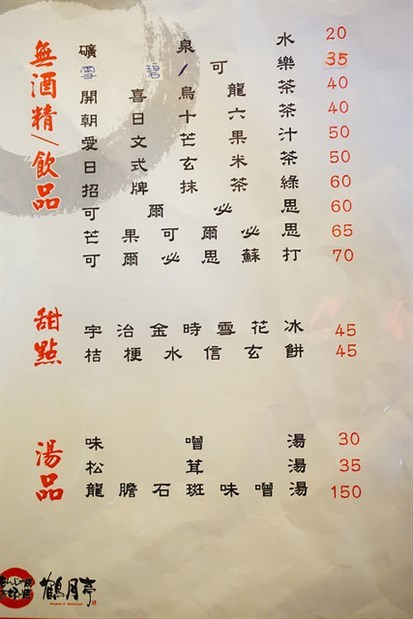 無酒精/飲品
礦泉水 20
雪碧/可樂 35
開喜烏龍茶 40
朝日十六茶 40
愛文芒果汁 50
日式玄米茶 50
招牌抹茶綠 60
可爾必思 60
芒果可爾必思 65
可爾必思蘇打 70
甜點
宇治金時雪花冰 45
桔梗水信玄餅 45
湯品
味噌湯 30
松茸湯 35
龍膽石斑味噌湯 150
鶴月亭